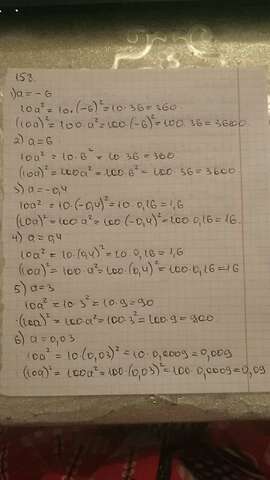 158.
1) a = -6
10a² = 10·(-6)² = 10·36 = 360
(10a)² = 100·a² = 100·(-6)² = 100·36 = 3600.
2) a = 6
10a² = 10·6² = 10·36 = 360
(10a)² = 100a² = 100·6² = 100·36 = 3600
3) a = -0,4
10a² = 10·(-0,4)² = 10·0,16 = 1,6
(10a)² = 100·a² = 100·(-0,4)² = 100·0,16 = 16.
4) a = 0,4
10a² = 10·(0,4)² = 10·0,16 = 1,6
(10a)² = 100·a² = 100·(0,4)² = 100·0,16 = 16
5) a = 3
10a² = 10·3² = 10·9 = 90
(10a)² = 100·a² = 100·3² = 100·9 = 900
6) a = 0,03
10a² = 10(0,03)² = 10·0,0009 = 0,009
(10a)² = 100a² = 100(0,03)² = 100·0,0009 = 0,09